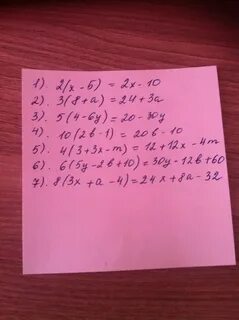 1). 2(x-5) = 2x-10
2). 3(8+a) = 24+3a
3). 5(4-6y) = 20-30y
4). 10(2b-1) = 20b-10
5). 4(3+3x-m) = 12+12x-4m
6). 6(5y-2b+10) = 30y-12b+60
7). 8(3x+a-4) = 24x+8a-32